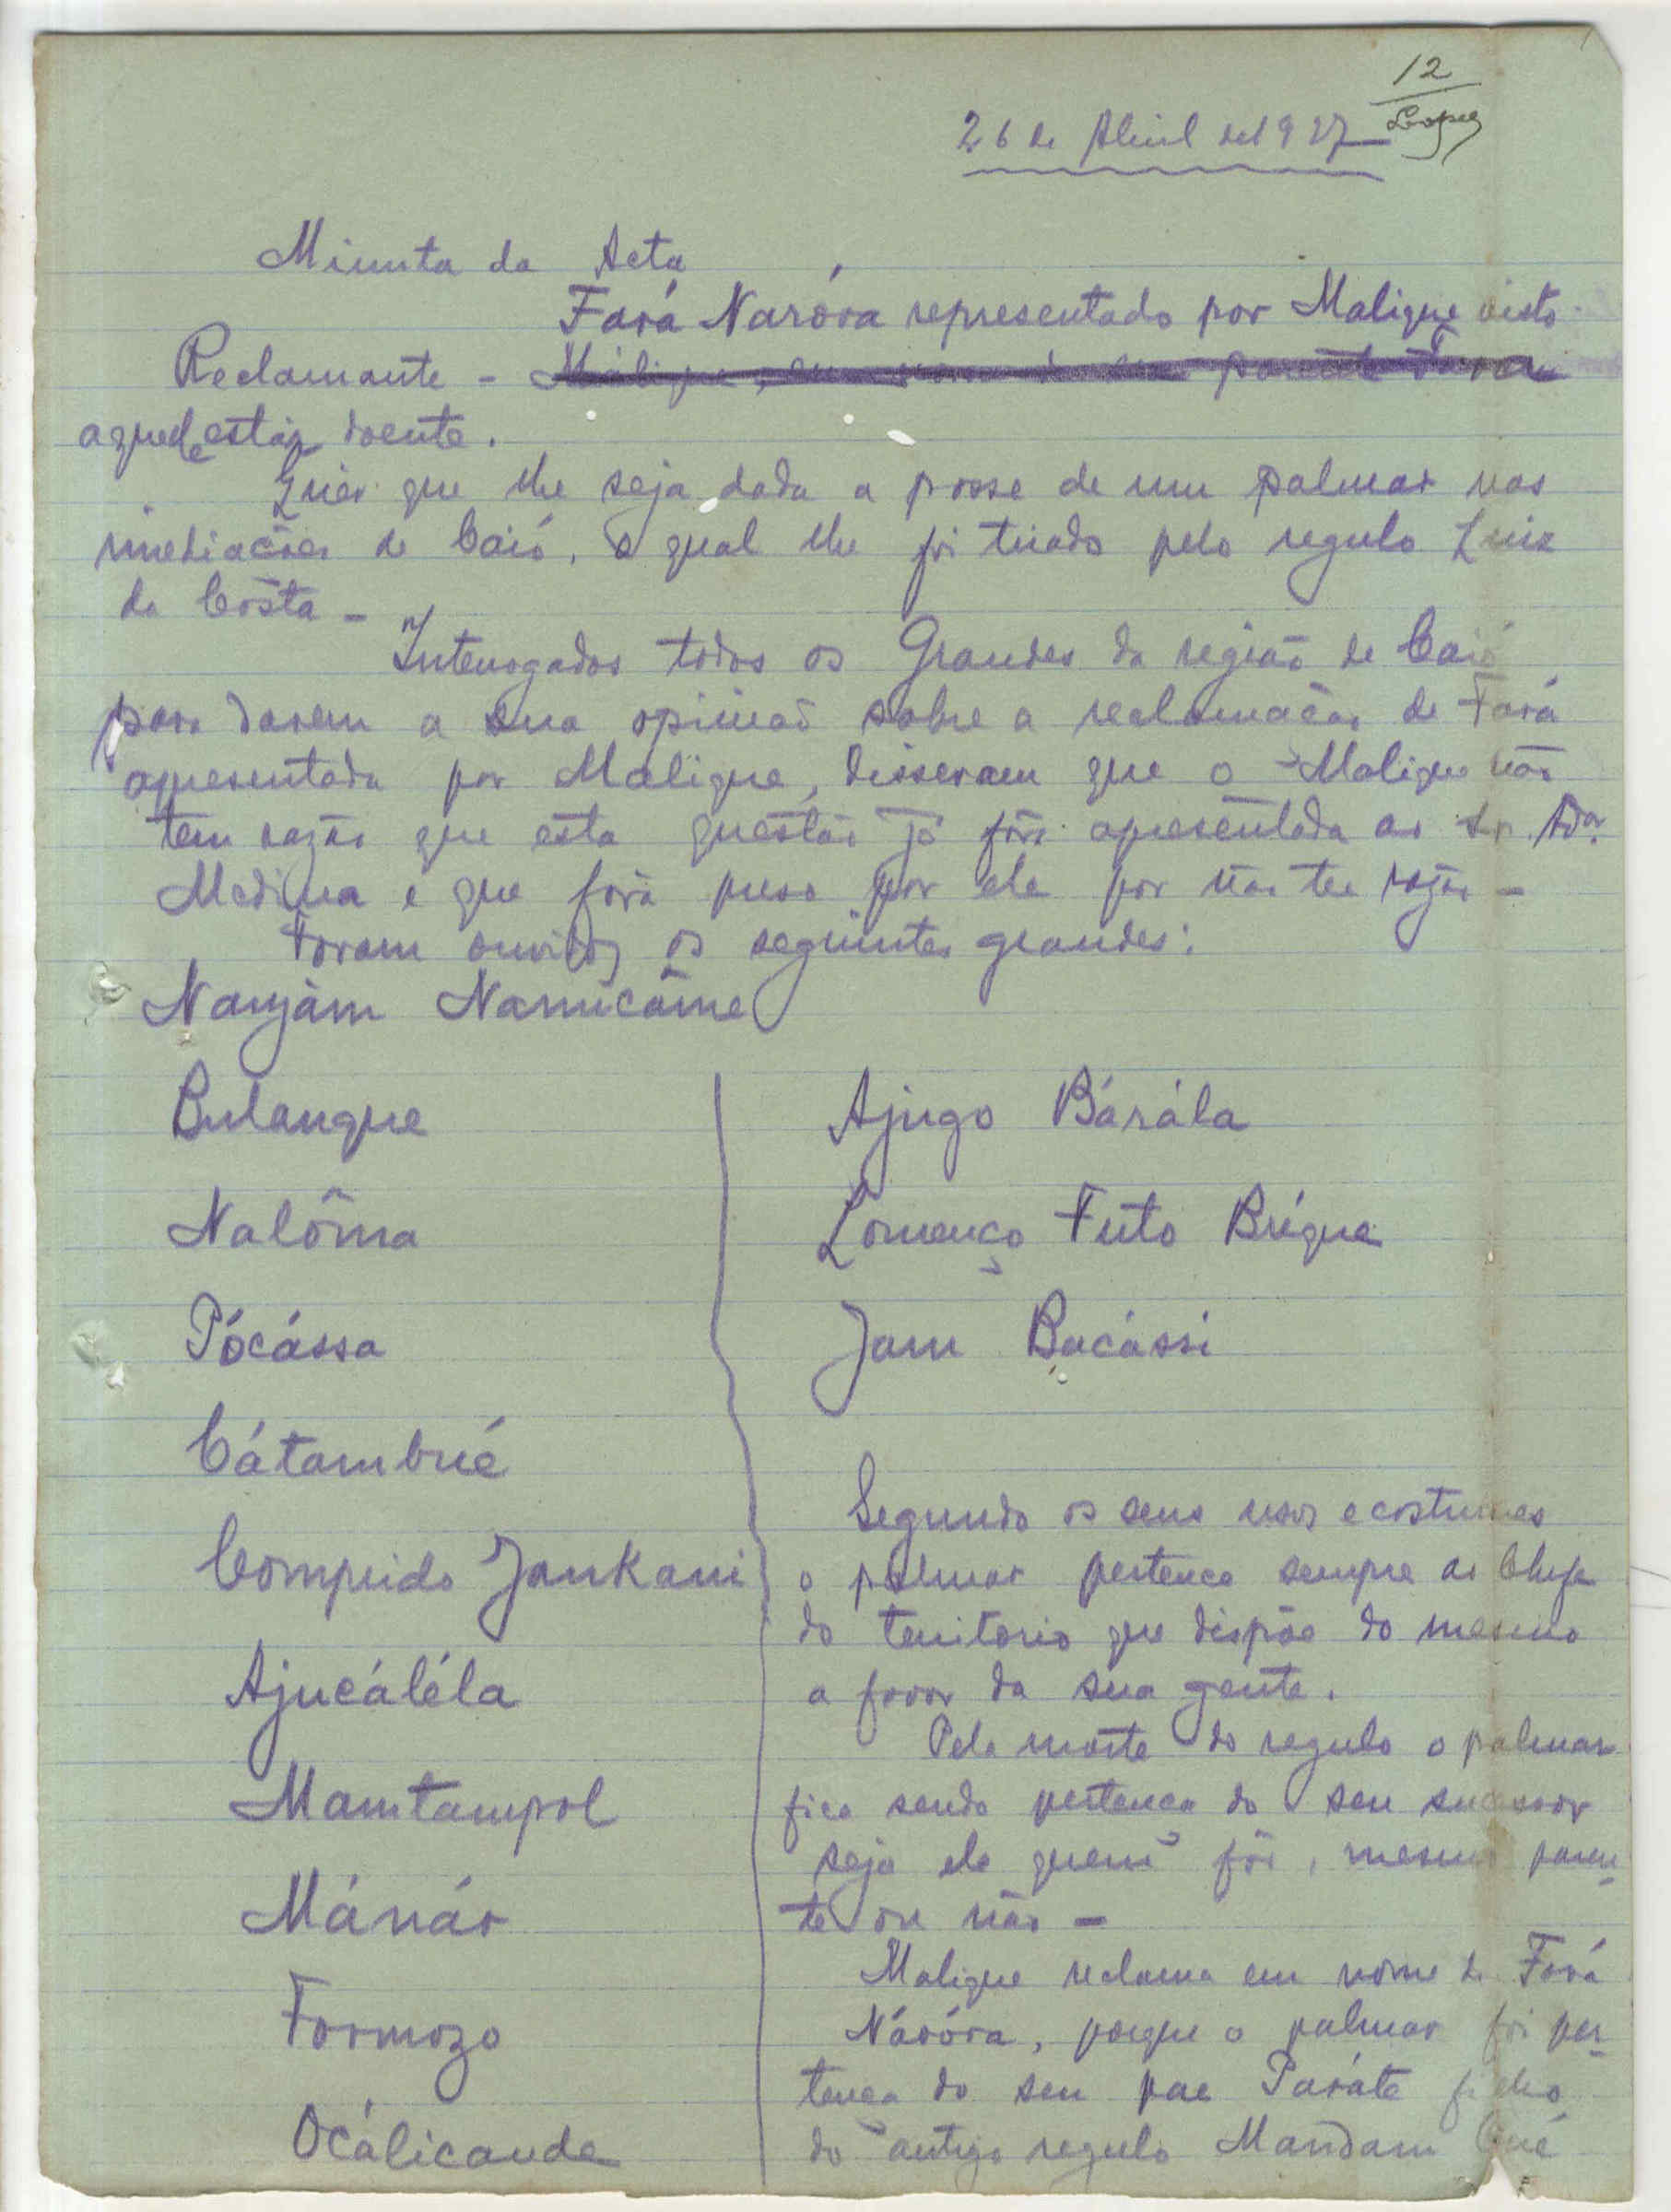 12
Lopes
26 de Abril de 1927
Minuta da Acta
Fará Naróra representado por Malique visto
Reclamante -
aquele estar doente.
Quer que lhe seja dada a posse de um palmar nas
imediações de Caió, o qual lhe foi tirado pelo regulo Luiz
da Costa -
Interrogados todos os Grandes da região de Caió
para darem a sua opinião sobre a reclamação de Fará
apresentada por Malique, disseram que o Malique não
tem razão que esta questão já fôra apresentada ao Sr. Adór.
Medina e que fôra preso por ele por não ter razão -
Foram ouvidos os seguintes grandes:
Nanjàm Namicâme
Bulangue
Nalôma
Pócássa
Cátambué
Comprido Jankani
Ajucáléla
Mamtampol
Mánár
Formozo
Ocálicande
Ajugo Bárála
Lourenço Futo Brégue
Jam Bucássi
Segundo os seus usos e costumes
o palmar pertence sempre ao Chefe
do territorio que dispõe do mesmo
a favor da sua gente.
Pela morte do regulo o palmar
fica sendo pertença do seu sucessor
seja ele quem fôr, mesmo paren-
te ou não -
Malique reclama em nome de Fará
Náróra, porque o palmar foi per-
tença do seu pae Paráte filho
do antigo regulo Mandam Cué